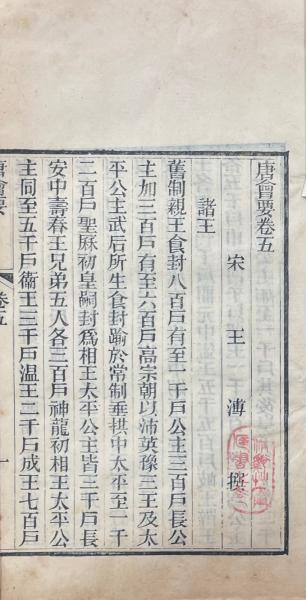 唐會要卷五
宋 王 溥 撰
諸王
舊制親王食封八百戶有至一千戶公主三百戶長公
主加三百戶有至六百戶高宗朝以沛英豫三王及太
平公主武后所生食封踰於常制垂拱中太平至一千
二百戶聖厤初皇嗣封為相王太平公主皆三千戶長
安中壽春王兄弟五人各三百戶神龍初相王太平公
主同至五千戶衛王三千戶温王二千戶成王七百戶
唐會要
卷五
一